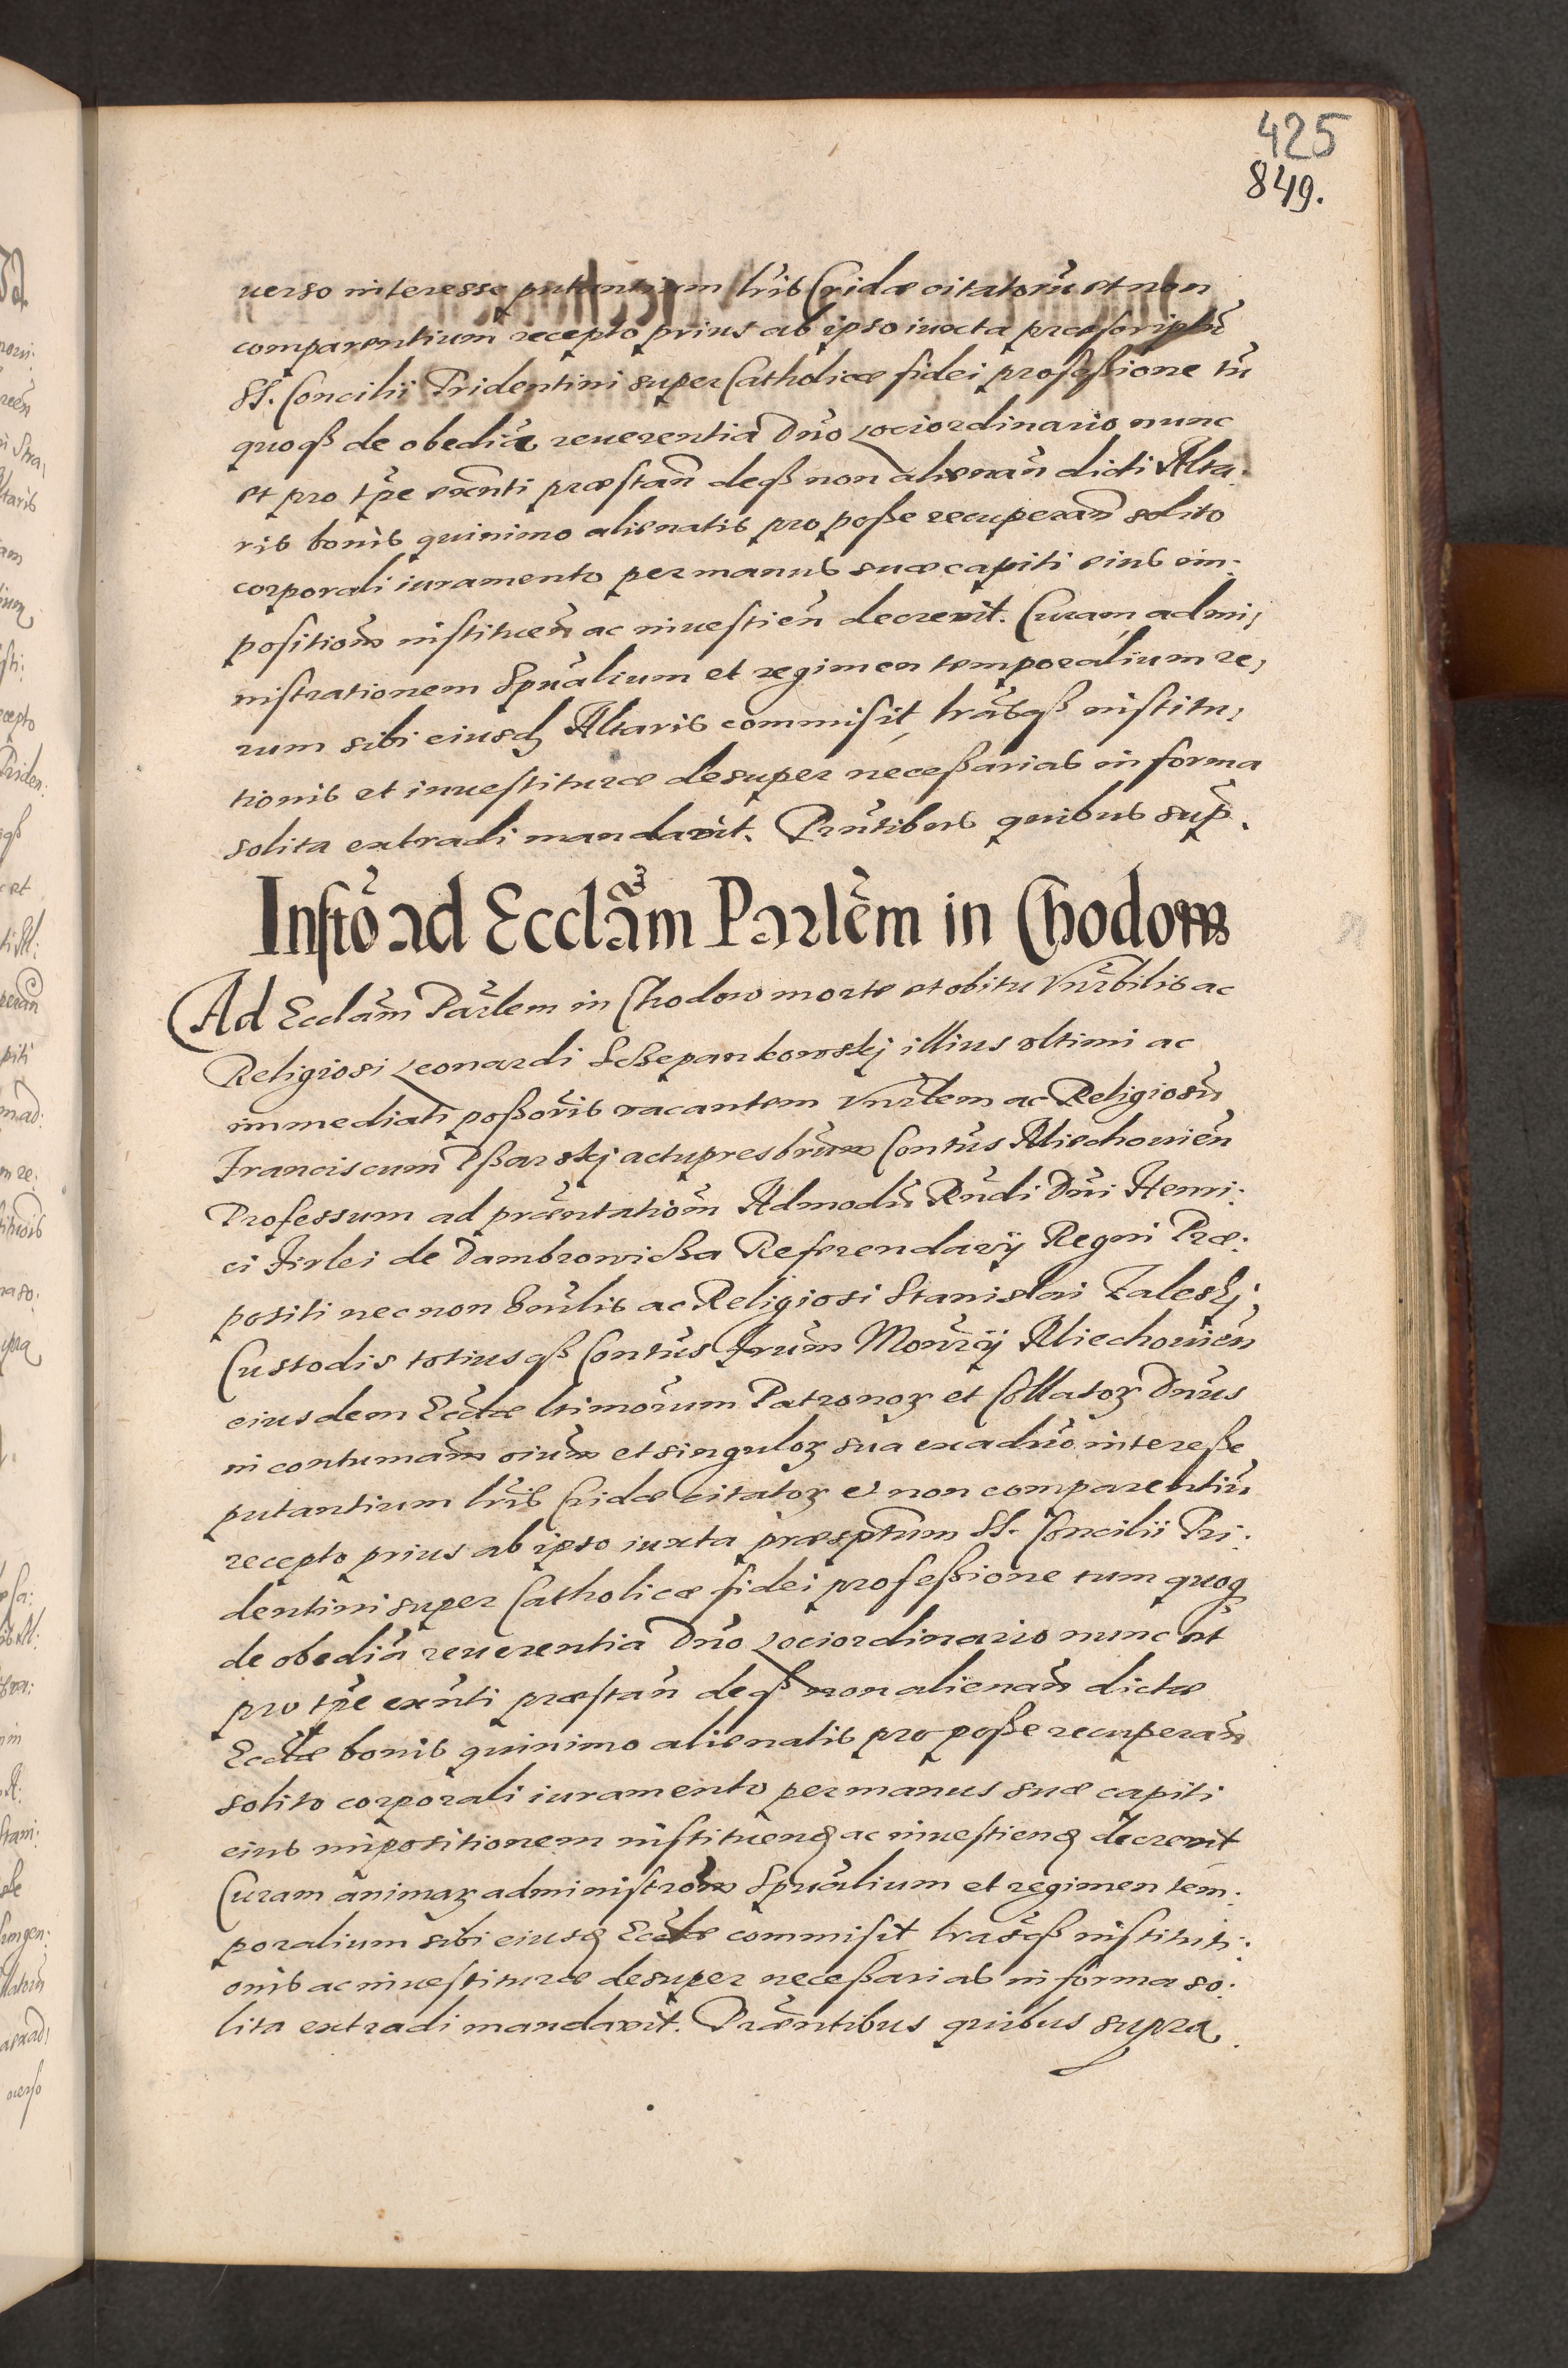 425
849.
uerso interesse putantium lris Cridæ citatorũ et non
comparentium recepto prius ab ipso iuxta præscriptũ
SS. Concilii Tridentini super Catholicæ fidei professione tũ
quoqß de obediã reuerentia Dño Lociordinario nunc
et pro tp̃e exñti præstañ deqß non alienañ dicti Alta-
ris bonis quinimo alienatis pro posse recuperañ solito
corporali iuramento per manus suæ capiti eius im:
positioñ instituẽn ac inuestieñ decreuit. Curam admi,
nistrationem Spũalium et regimen temporalium re,
rum sibi eiusdẽ Altaris commisit, lrãsqß institu,
tionis et inuestituræ desuper necessarias in forma
solita extradi mandauit. Prñtibus quibus sup̃.
Instõ ad Ecclãm Parlẽm in Chodow
Ad Ecclãm Parlem in Chodow morte et obitu Vñrbilis ac
Religiosi Leonardi Sczepankowskj illius vltimi ac
immediati possoris vacantem Vñrlem ac Religiosũ
Franciscum Pßarskj actu presbrum Contus Miechouieñ
Professum ad præntatioñ Admodũ Rñdi Dñi Henri:
ci Firlei de Dambrowicza Referendarÿ Regni Præ:
positi nec non Vñrlis ac Religiosi Stanislai Zaleskj
Custodis totiusqß Contus Frum Monrÿ Miechouieñ
eiusdem Ecclæ ltimorum Patronoꝝ et Collatoꝝ Dnus
in contumañ oium et singuloꝝ sua exaduo interesse
putantium lris Cridæ citatoꝝ et non comparentiũ
recepto prius ab ipso iuxta præsptum SS. Concilii Tri:
dentini super Catholicæ fidei professione tum quoq
de obediã reuerentia Dño Lociordinario nunc et
pro tp̃e exñti præstañ deqß non alienañ dictæ
Ecclæ bonis quinimo alienatis pro posse recuperañ
solito corporali iuramento per manus suæ capiti
eius impositionem instituend ac inuestiend decreuit
Curam animaꝝ administroñ Spũalium et regimen tem:
poralium sibi eiusd Ecclæ commisit lrasqß instituti:
onis ac inuestituræ desuper necessarias in forma so:
lita extradi mandauit. Præntibus quibus supra.